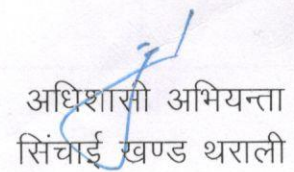 अधिशासी अभियन्ता
सिंचाई खण्ड थराली